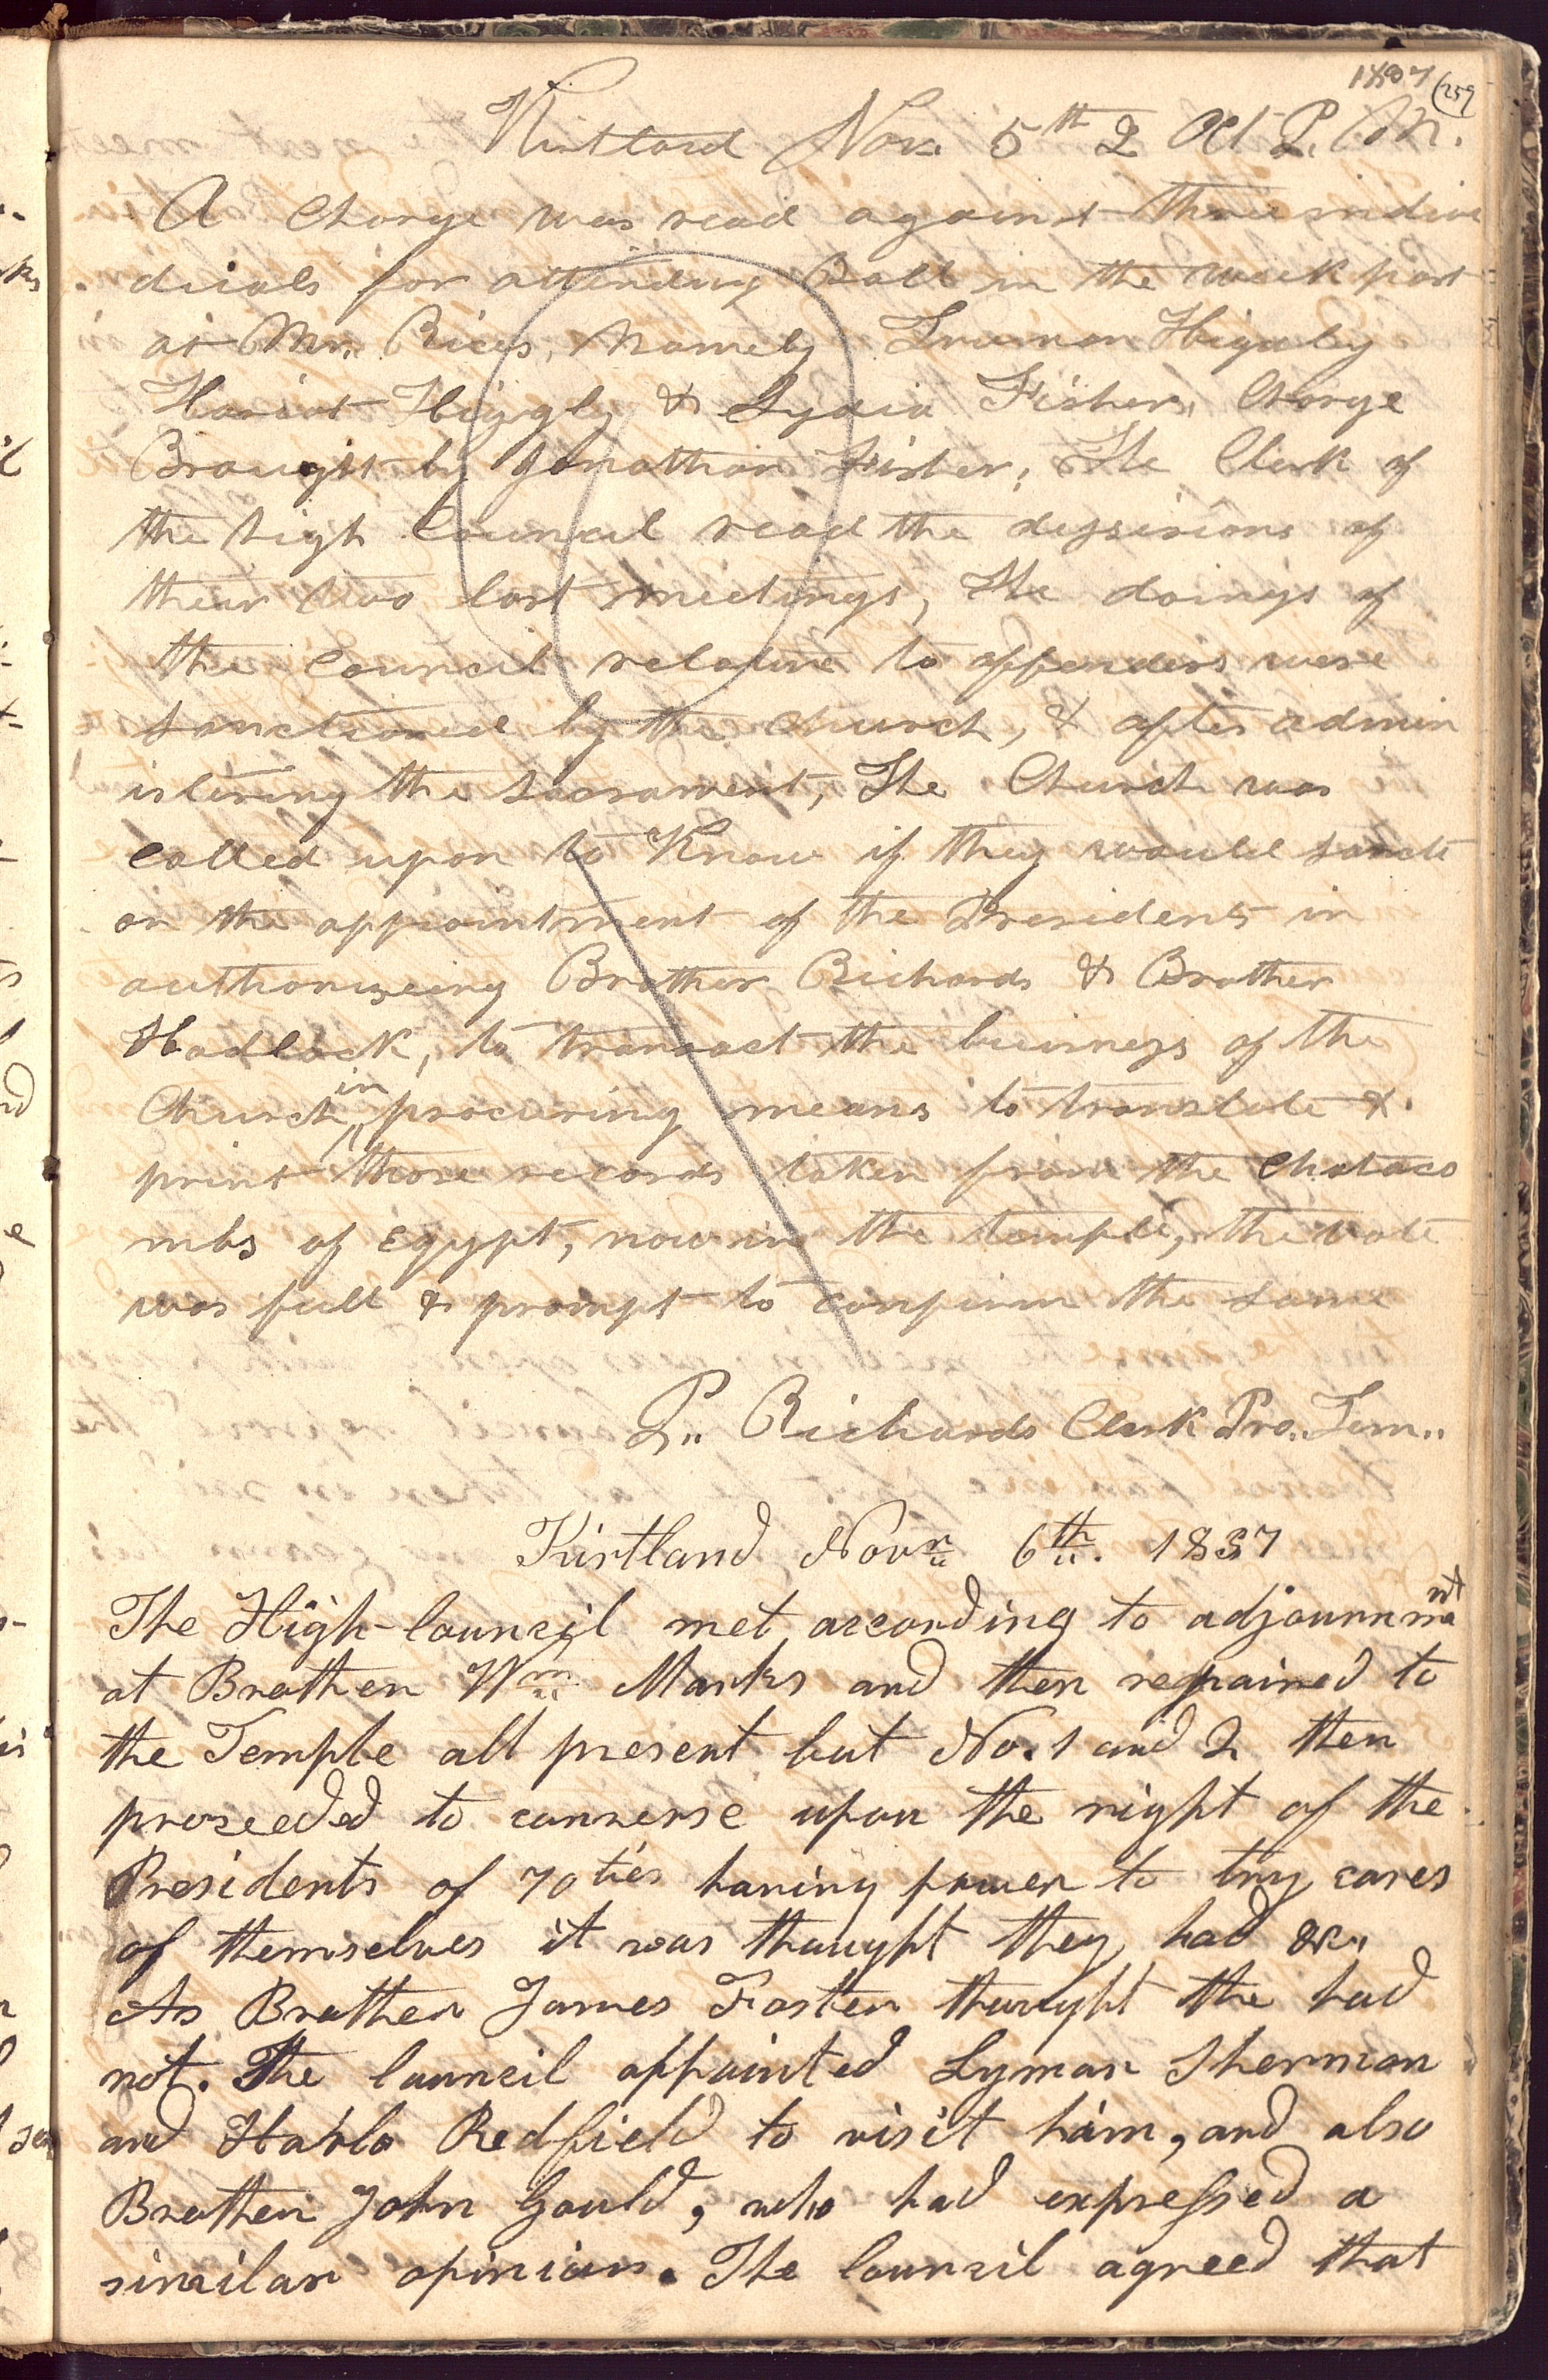 1837
259
Kirtland Nov. 5th 2 Oct P. M.
A Charge was read against three indivi
duials for attending Ball in the week past
at Mr. Rices, Namely Truman Higuby
Hariot Higgly & Lydia Fisher, Charge
Brought by Jonathan Fisher, The Clerk of
the high Council read the dessisions of
their two last meetings, The doings of
the Council relative to offenders were
sanctioned by the church, & after admin
istering the sacrament, The Church was
called upon to Know if they would sancti
on the appointment of the Presidents in
authoriseing Brother Richards & Brother
Hadlock, to transact the buisness of the
Church in procuring means to translate &
print those records taken from the Chataco
mbs of Egypt, now in the temple, the vote
was full & prompt to confirm the same
P. Richards Clerk Pro. Tem..
Kirtland Novr. 6th. 1837
The High-Council met according to adjournment
at Brother Wm Marks and then repaired to
the Temple all present but No. 1 and 2 then
proceeded to converse upon the right of the
Presidents of 70ties having power to try cases
of themselves it was thought they had &c.
As Brother James Foster thought the had
not. The Council appointed Lyman Sherman
and Harlo Redfield to visit him, and also
Brother John Gould, who had expressed a
similar opinion. The Council agreed that